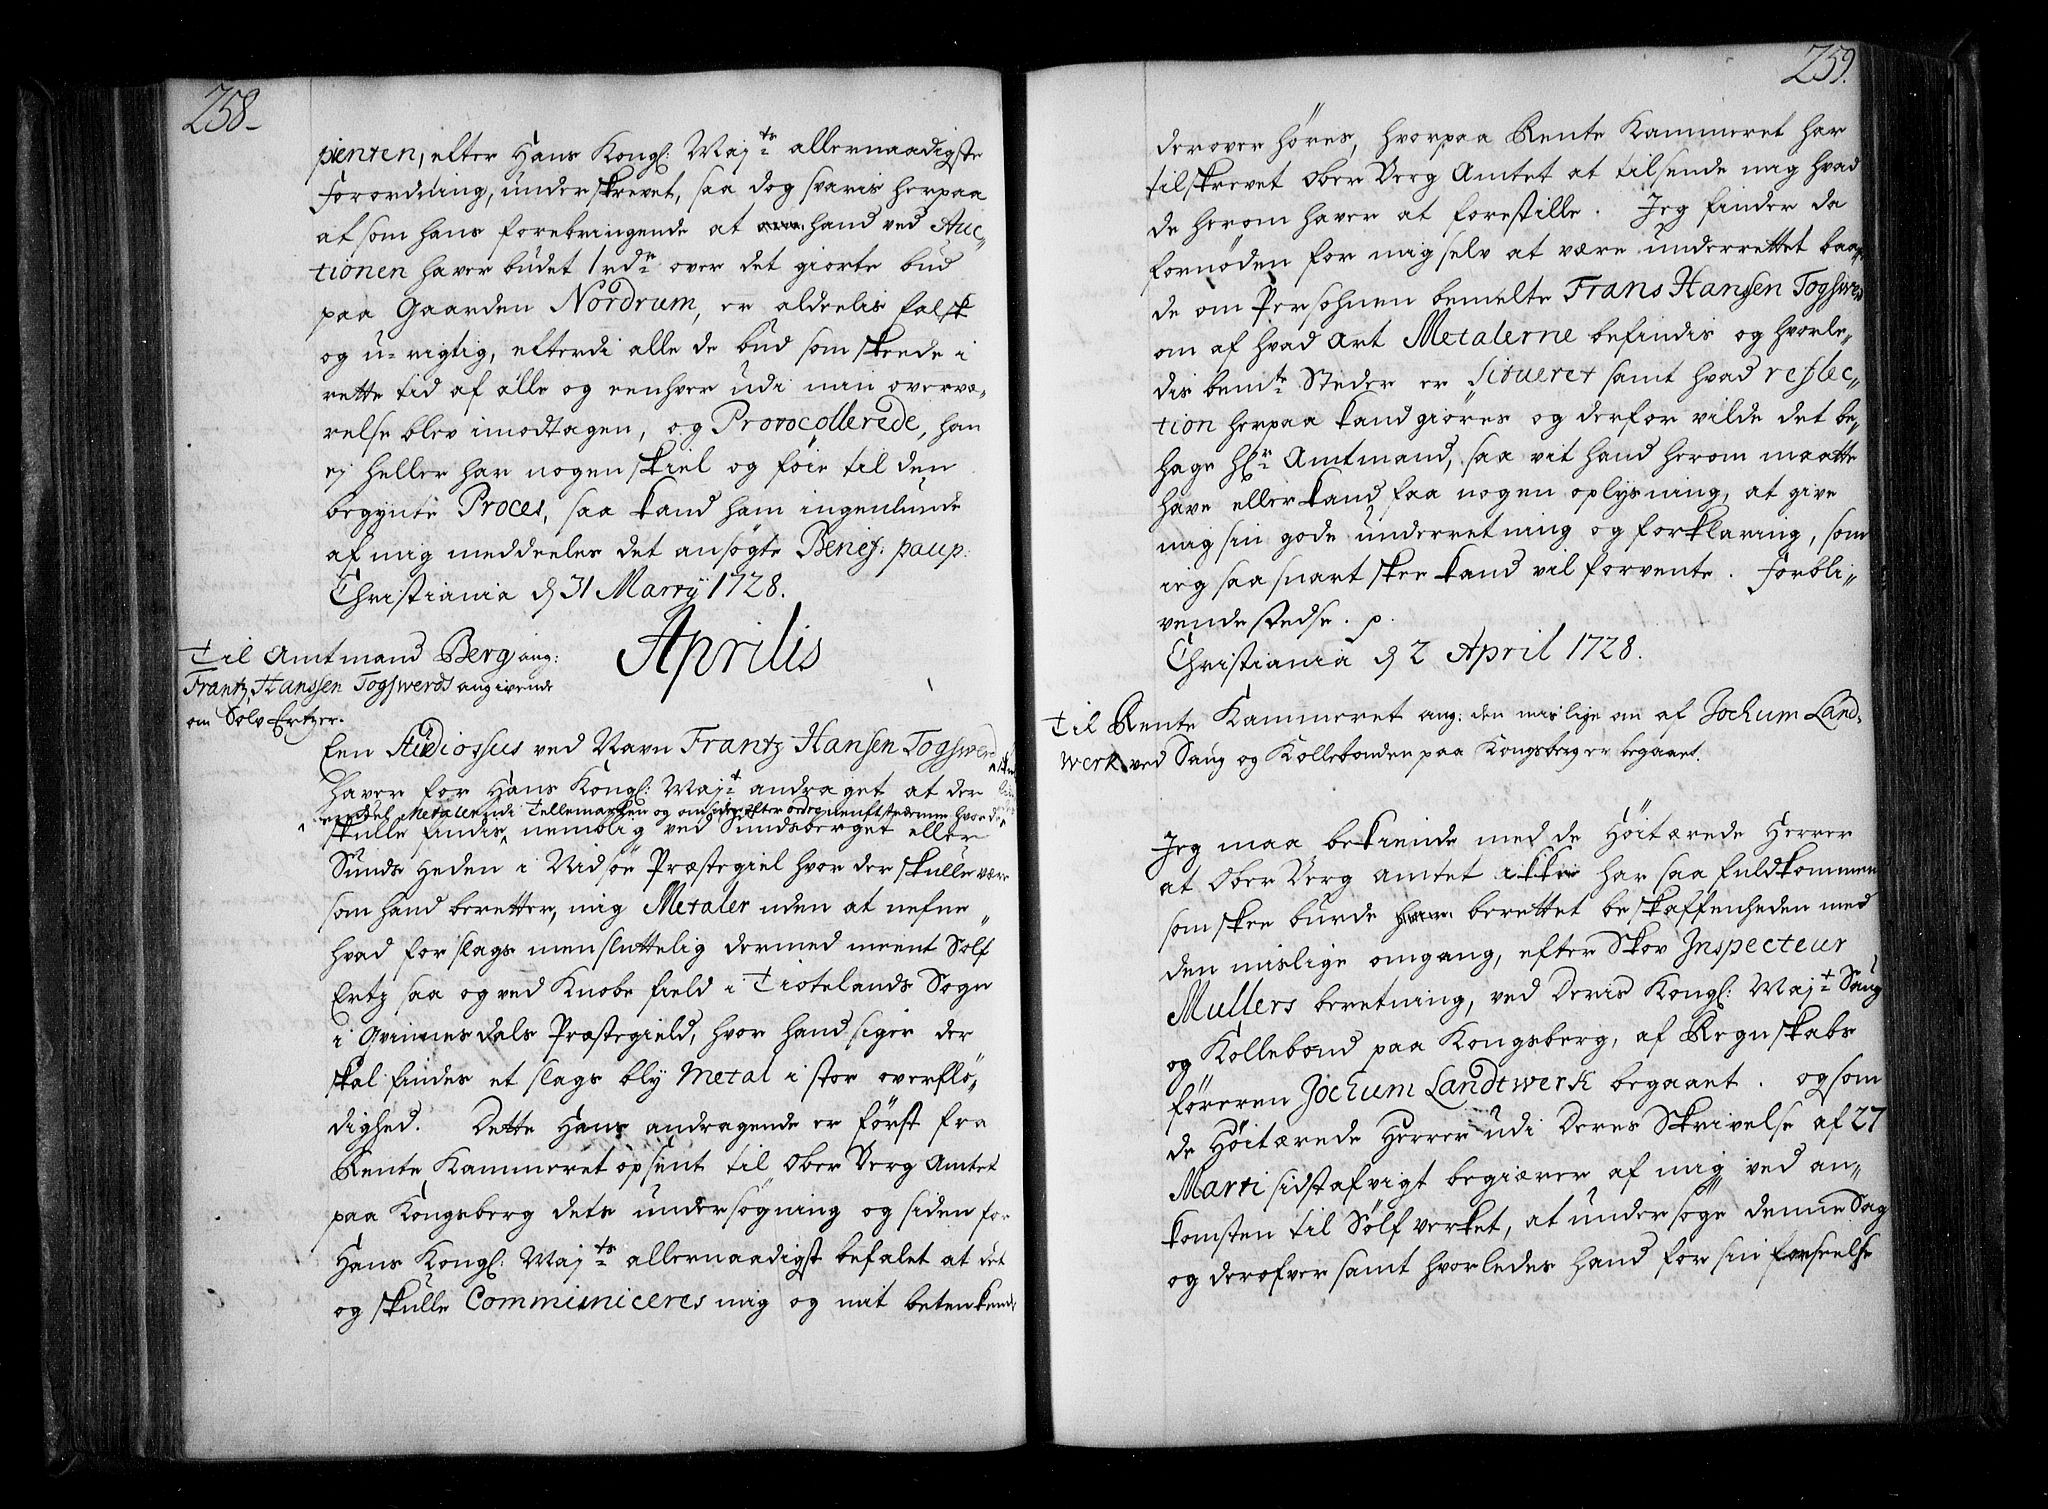 258
pienten, efter Hans Kongl: Maj.ts allernaadigste
Forordning, underskrevet, saa dog svaris herpaa
at som hans forebringende at hand ved Auc„
tionen haver budet 1 rdr over det giorte bud
paa Gaarden Nordrum, er aldeelis falsk
og u-rigtig, efterdi alle de bud som skeede i
rette tid af alle og eenhver udi min overvæ„
relse blev imodtagen, og Protocollerede, han
ej heller har nogen skiel og föie til den
begynte Proces, saa kand ham ingenlunde
af mig meddeeles det ansøgte Benef: paup:
Christiania d 31 Martij 1728.
Aprilis
Til Amtmand Berg ang:
Frantz Hanssen Togswerds angivende
om Sølv Ertzer.
Een Studiossus ved Navn Frantz Hansen Togswerd
haver for Hans Kongl: Maj.t andraget at der
Metaler udi Tellemarken og om
skulle findis, nemblig ved Sundsberget eller
Sunds Heden i Vidsöe Præstegiel hvor der skulle være
som hand beretter, mig Metaler uden at nefne
hvad for slags men sluttelig dermed meent Sölf
Ertz saa og ved Knobe field i Tiotelands Sogn
i Qvinnesdals Præstegield, hvor hand siger der
skal findes et slags bly Metal i stor overflö„
dighed. Dette Hans andragende er først fra
Rente Kammeret opsent til Ober Berg Amtet
paa Kongsberg dets undersögning og siden for
Hans Kongl: Maj.ts allernaadigst befalet at det
og skulle Communiceres mig og mit betenkende
259.
derover höres, hvorpaa Rente Kammeret har
tilskrevet Ober Berg Amtet at tilsende mig hvad
de herom haver at forestille. Jeg finder da
fornöden for mig selv at være underrettet baa„
de om Persohnen bemelte Frans Hansen Togswerd
om af hvad art Metalerne befindis og hvorle„
dis bemte Steder er situeret samt hvad reflec„
tion herpaa kand giöres og derfor vilde det be„
hage Hr Amtmand, saa vit hand herom maatte
have eller kand faa nogen oplysning, at give
mig sin gode underretning og forklaring, som
ieg saa snart skee kand vil forvente. Forbli„
vende stedse. p.
Christiania d 2 April 1728.
Til Rente Kammeret ang: den mislige om af Jochum Land„
werk ved Saug og Kollebonden paa Kongsberg er begaaet.
Jeg maa bekiende med de Höitærede Herrer
at Ober Berg Amtet ikke har saa fuldkommen
som skee burde berettet beskaffenheden med
den mislige omgang, efter Skov Inspecteur
Mullers beretning, ved Deris Kongl: Maj.t Saug
og Kollebond paa Kongsberg, af Regnskabs
föreren Jochum Landtwerk begaaet. og som
de Höitærede Herrer udi Deres Skrivelse af 27
Marti sidstafvigt begiærer af mig ved an„
komsten til Sölfverket, at undersöge denne Sag
og derofver samt hvorledes hand for sin forseelse